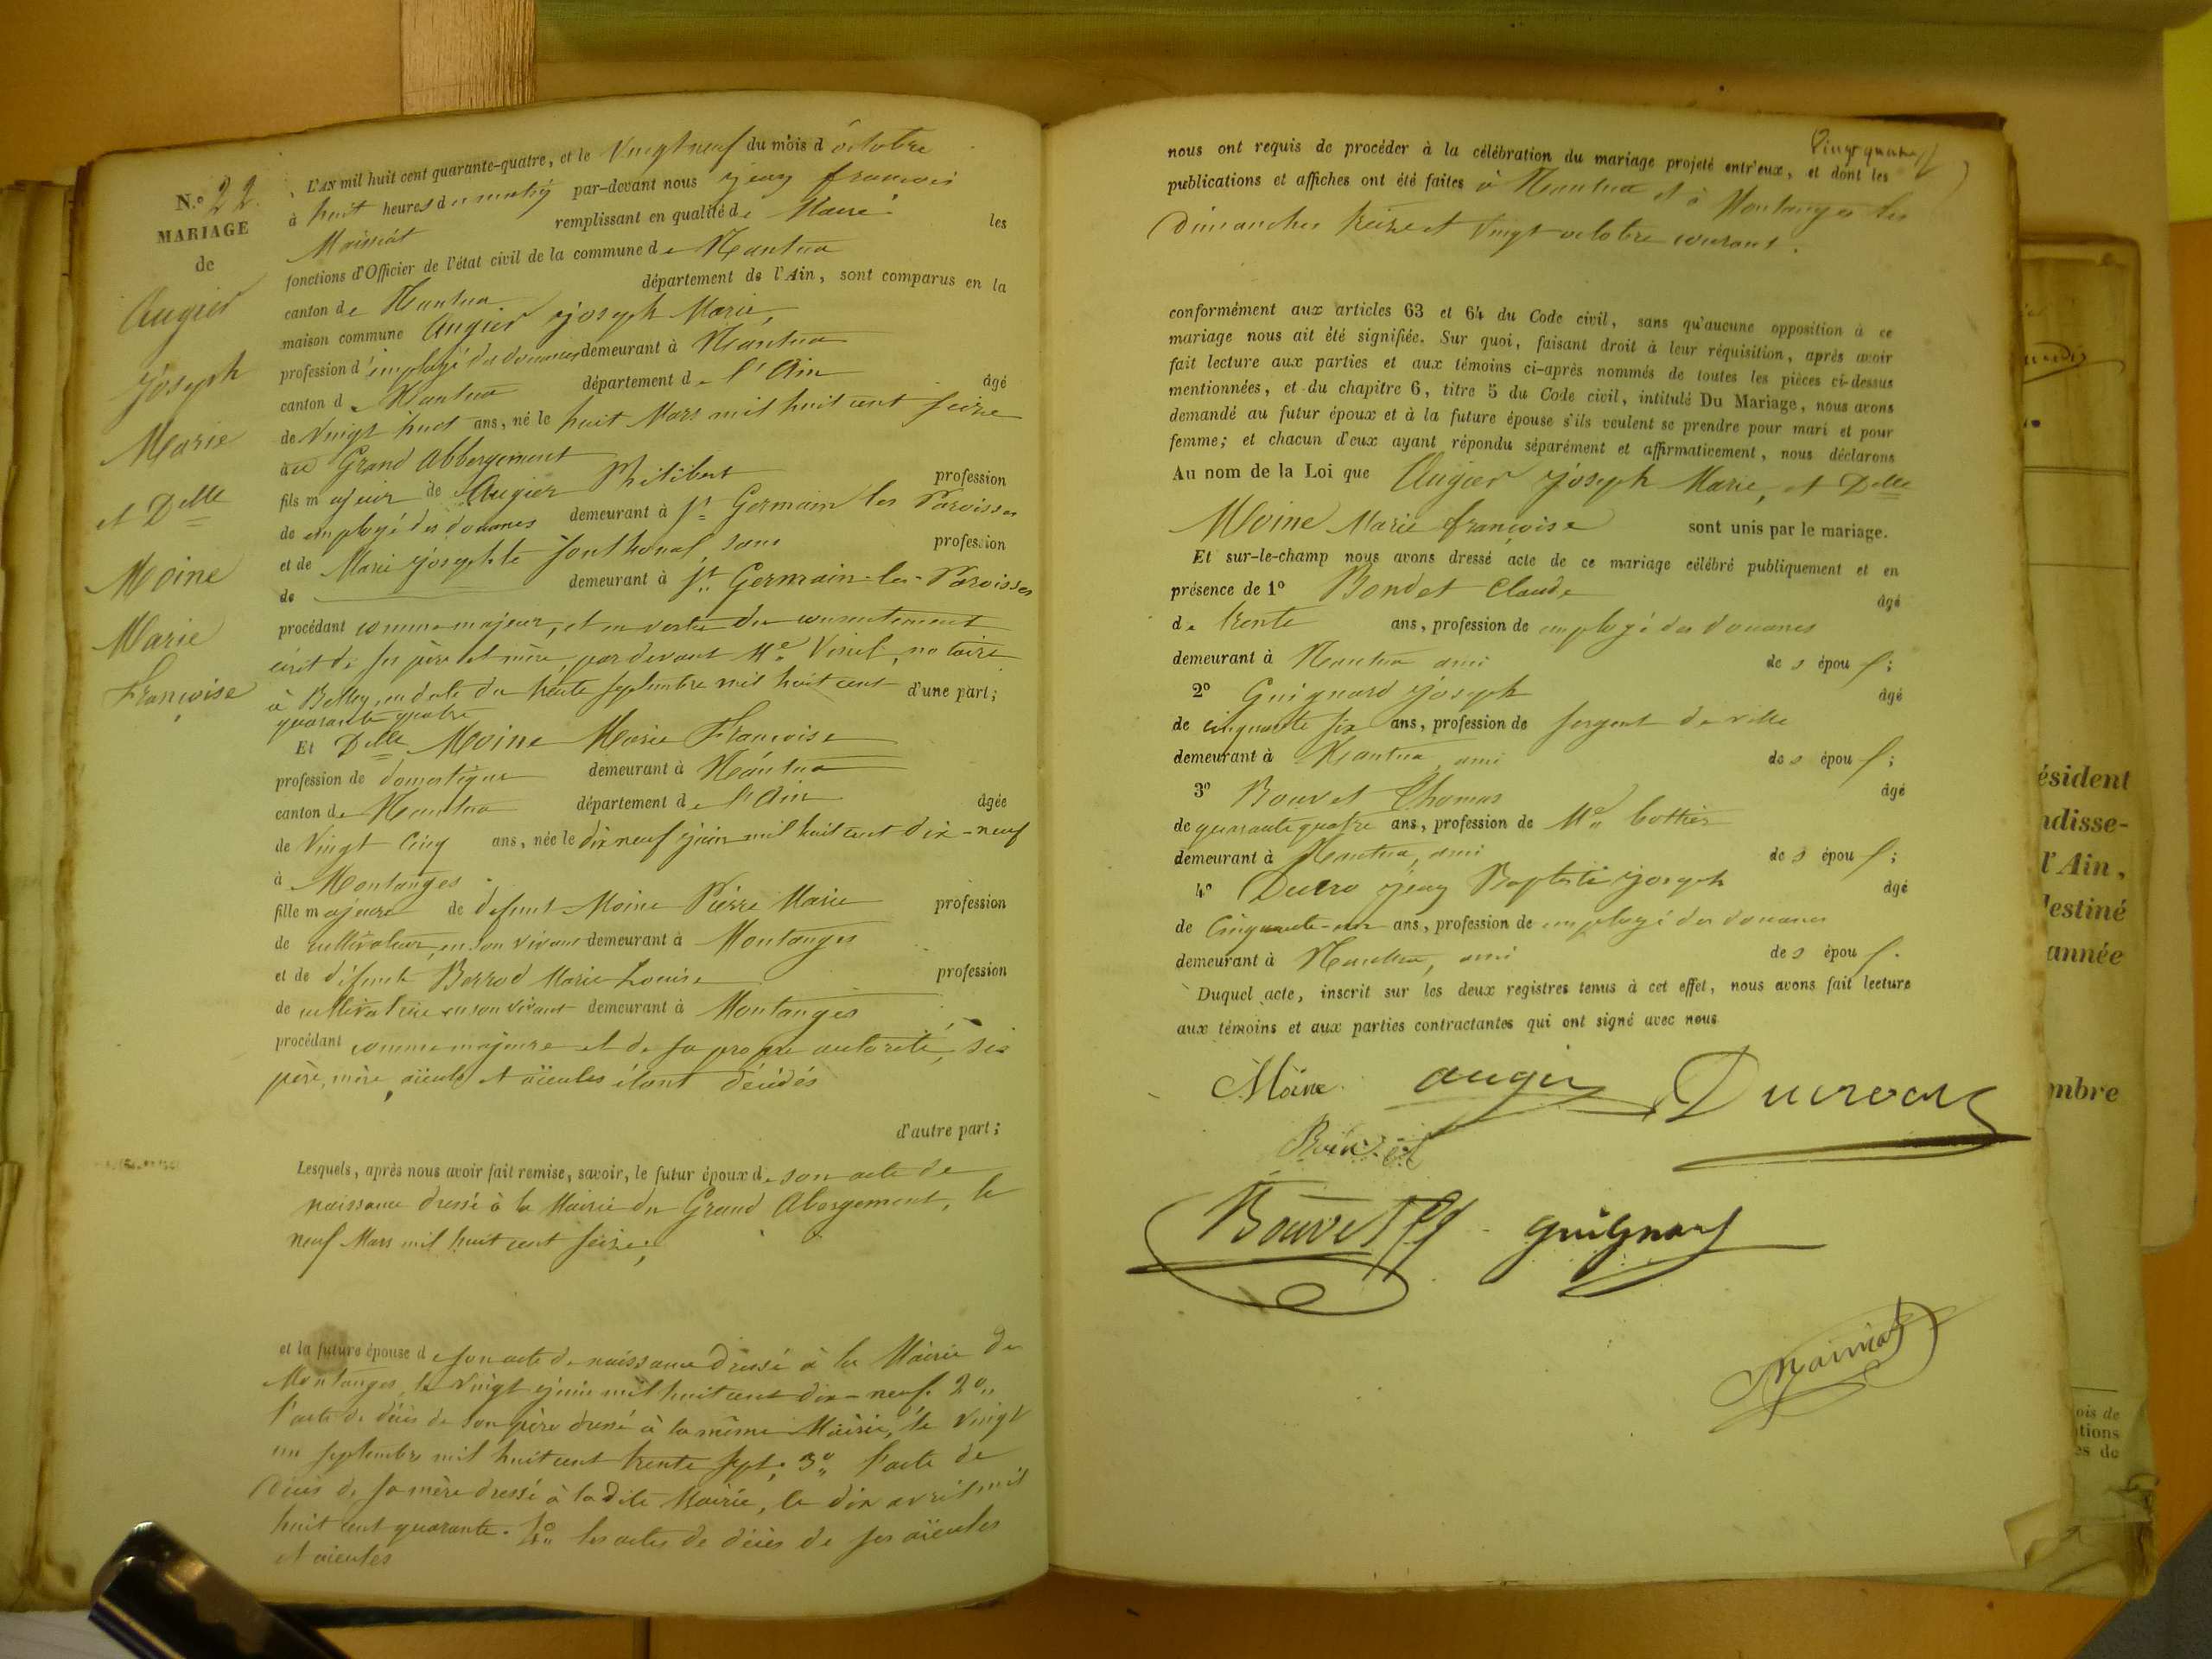 N.º 22.
MARIAGE
de
Augier
Joseph
Marie
et Delle
Moine
Marie
Françoise
L'AN mil huit cent quarante-quatre, et le Vingt neuf du mois d'octobre
à huit heures du matin par-devant nous Jean françois
Maissiat remplissant en qualité de Maire les
fonctions d'Officier de l'état civil de la commune de Nantua
canton de Nantua département de l'Ain, sont comparus en la
maison commune Augier Joseph Marie,
profession d'employé des douanes demeurant à Nantua
canton de Nantua département de l'Ain âgé
de Vingt huit ans, né le huit Mars mil huit cent seize
au Grand Abbergement
fils majeur de Augier Philibert profession
de employé des douanes demeurant à St Germain les Paroisses
et de Marie Josephte sans profession
de demeurant à St Germain-les-Paroisses
procédant comme majeur, et en vertu du consentement
écrit de ses père et mère, par devant Me notaire
à Belley, en date du trente septembre mil huit cent d'une part;
quarante quatre
Et Delle Moine Marie Françoise
profession de domestique demeurant à Nantua
canton de Nantua département de l'Ain âgée
de Vingt Cinq ans, née le dix neuf juin mil huit cent dix-neuf
à Montanges.
fille majeure de defunt Moine Pierre Marie profession
de cultivateur, en son vivant demeurant à Montanges
et de défunte Berrod Marie Louise profession
de cultivatrice en son vivant demeurant à Montanges
procédant comme majeure et de sa propre autorité, ses
père, mère, aïeuls et aïeules étant décédés
d'autre part;
Lesquels, après nous avoir fait remise, savoir, le futur époux de son acte de
naissance dressé à la Mairie du Grand Abergement, le
neuf Mars mil huit cent seize;
et la future épouse de son acte de naissance dressé à la Mairie de
Montanges, le vingt juin mil huit cent dix-neuf. 2º
l'acte de décès de son père dressé à la même Mairie, le vingt
un septembre mil huit cent trente sept. 3º l'acte de
décès de sa mère dressé à la dite Mairie, le dix avril mil
huit cent quarante. 4º les actes de décès de ses aïeules
et aïeules
Vingt quatre
nous ont requis de procéder à la célébration du mariage projeté entr'eux, et dont les
publications et affiches ont été faites à Nantua et à Montanges les
Dimanches treize et vingt octobre courant.
conformément aux articles 63 et 64 du Code civil, sans qu'aucune opposition à ce
mariage nous ait été signifiée. Sur quoi, faisant droit à leur réquisition, après avoir
fait lecture aux parties et aux témoins ci-après nommés de toutes les pièces ci-dessus
mentionnées, et du chapitre 6, titre 5 du Code civil, intitulé Du Mariage, nous avons
demandé au futur époux et à la future épouse s'ils veulent se prendre pour mari et pour
femme; et chacun d'eux ayant répondu séparément et affirmativement, nous déclarons
Au nom de la Loi que Augier Joseph Marie, et Delle
Moine Marie françoise sont unis par le mariage.
Et sur-le-champ nous avons dressé acte de ce mariage célébré publiquement et en
présence de 1º Bondet Claude âgé
de trente ans, profession de employé des douanes
demeurant à Nantua ami des épou ;
2º Guignard Joseph âgé
de cinquante six ans, profession de sergent de ville
demeurant à Nantua, ami des épou ;
3º Bouvet Thomas âgé
de quarante quatre ans, profession de Md bottier
demeurant à Nantua, ami des épou ;
4º Jean Baptiste Joseph âgé
de Cinquante ans, profession de employé des douanes
demeurant à Nantua, ami des épou .
Duquel acte, inscrit sur les deux registres tenus à cet effet, nous avons fait lecture
aux témoins et aux parties contractantes qui ont signé avec nous
Moine augier
Bouvet guignard
Maissiat
ésident
ndisse-
l'Ain,
destiné
année
mbre
ois de
ations
es de